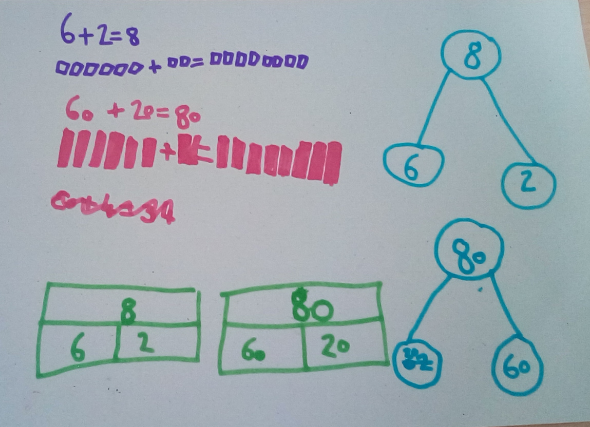 6+2=8
+ =
60 + 20=80
+ =
8
6 2
80
60
8
6 2
80
60 20